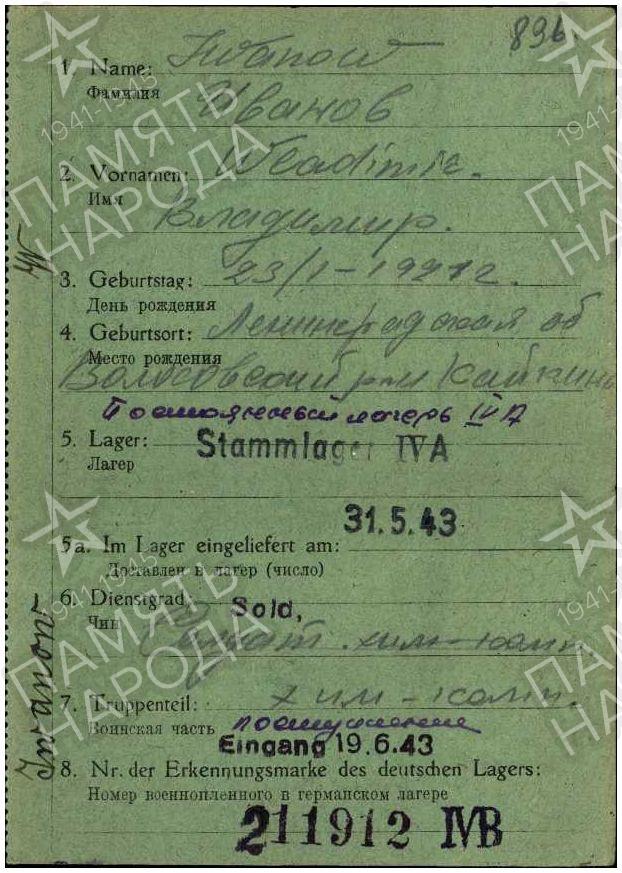 896
1. Name: Iwanow
Фамилия Иванов
2. Vornamen: Wladimir.
Имя
Владимир.
3. Geburtstag: 23/I-1921г.
День рождения
4. Geburtsort: Ленинградская об
Место рождения
Волосовский р-н
Постоянный лагерь IV A
5. Lager: Stammlager IVA
Лагер
31.5.43
5a. Im Lager eingeliefert am:
Доставлен в лагер (число)
6. Dienstgrad: Sold,
Чин Солдат. хим-комп.
7. Truppenteil: хим-комп.
Воинская часть поступление
Eingang 19.6.43
8. Nr. der Erkennungsmarke des deutschen Lagers:
Номер военнопленного в германском лагере
211912 IVB
Iwanow W
1941-1945
ПАМЯТЬ
НАРОДА